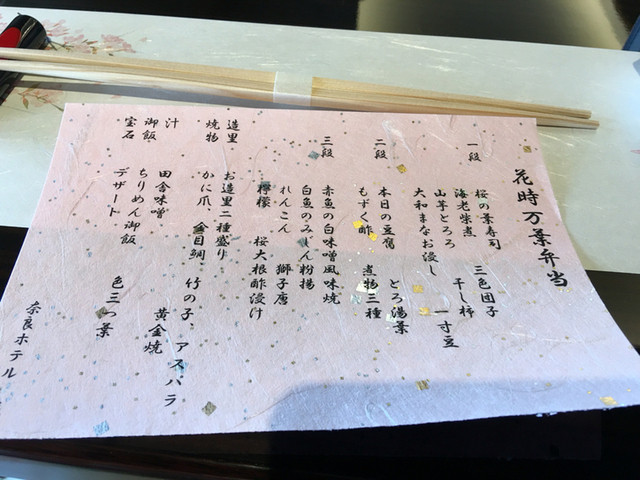 花時万葉弁当
一段 桜の葉寿司 三色団子
海老柴煮 干し柿
山芋とろろ 一寸豆
大和まなお浸し
二段 本日の豆腐 とろ湯葉
もずく酢 煮物三種
三段 赤魚の白味噌風味焼
白魚のみじん粉揚
れんこん 獅子唐
檸檬 桜大根酢浸け
造里 お造里二種盛り
焼物 かに爪、金目鯛 竹の子、アスパラ
黄金焼
汁 田舎味噌
御飯 ちりめん御飯 色三つ葉
宝石 デザート
奈良ホテル